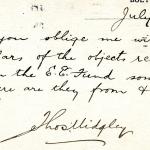 July
you oblige me wi
lars of the objects re
n the E.E. Fund som
ere are they from &
Thos Midgley